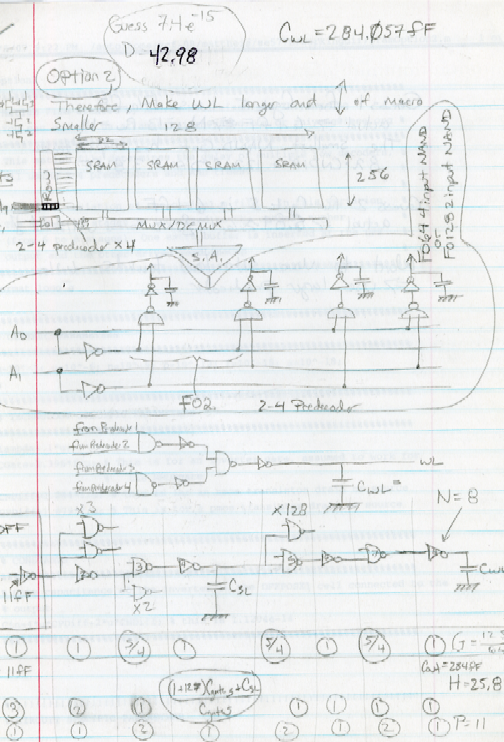 Guess 7.4 e^-15
C_WL = 284.057 fF
D = 42.98
Option 2
Therefore, Make WL longer and ↕ of macro
Smaller
128
32
SRAM SRAM SRAM SRAM
256
MUX/DEMUX
2-4 predecoder x4
S.A.
FO64 4 input NAND
or
FO128 2 input NAND
A0
A1
FO2
2-4 Predecoder
from Predecoder 1
from Predecoder 2
from Predecoder 3
from Predecoder 4
WL
C_WL =
N = 8
x3
x128
x2
C_SL
11fF
1 1 5/4 1 5/4 1 5/4 1
C_WL = 284fF
11fF
H = 25.8
(1+127)C_gate5 + C_SL
C_gate5
3 2 1 1 1 1 1
1 1 2 1 2 1 2 1 P = 11